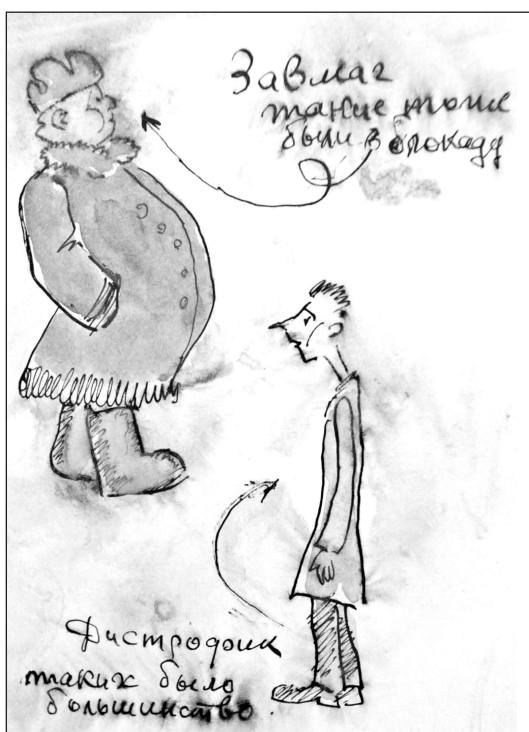 Завмаг
такие тоже
были в блокаду
Дистрофик
таких было
большинство.